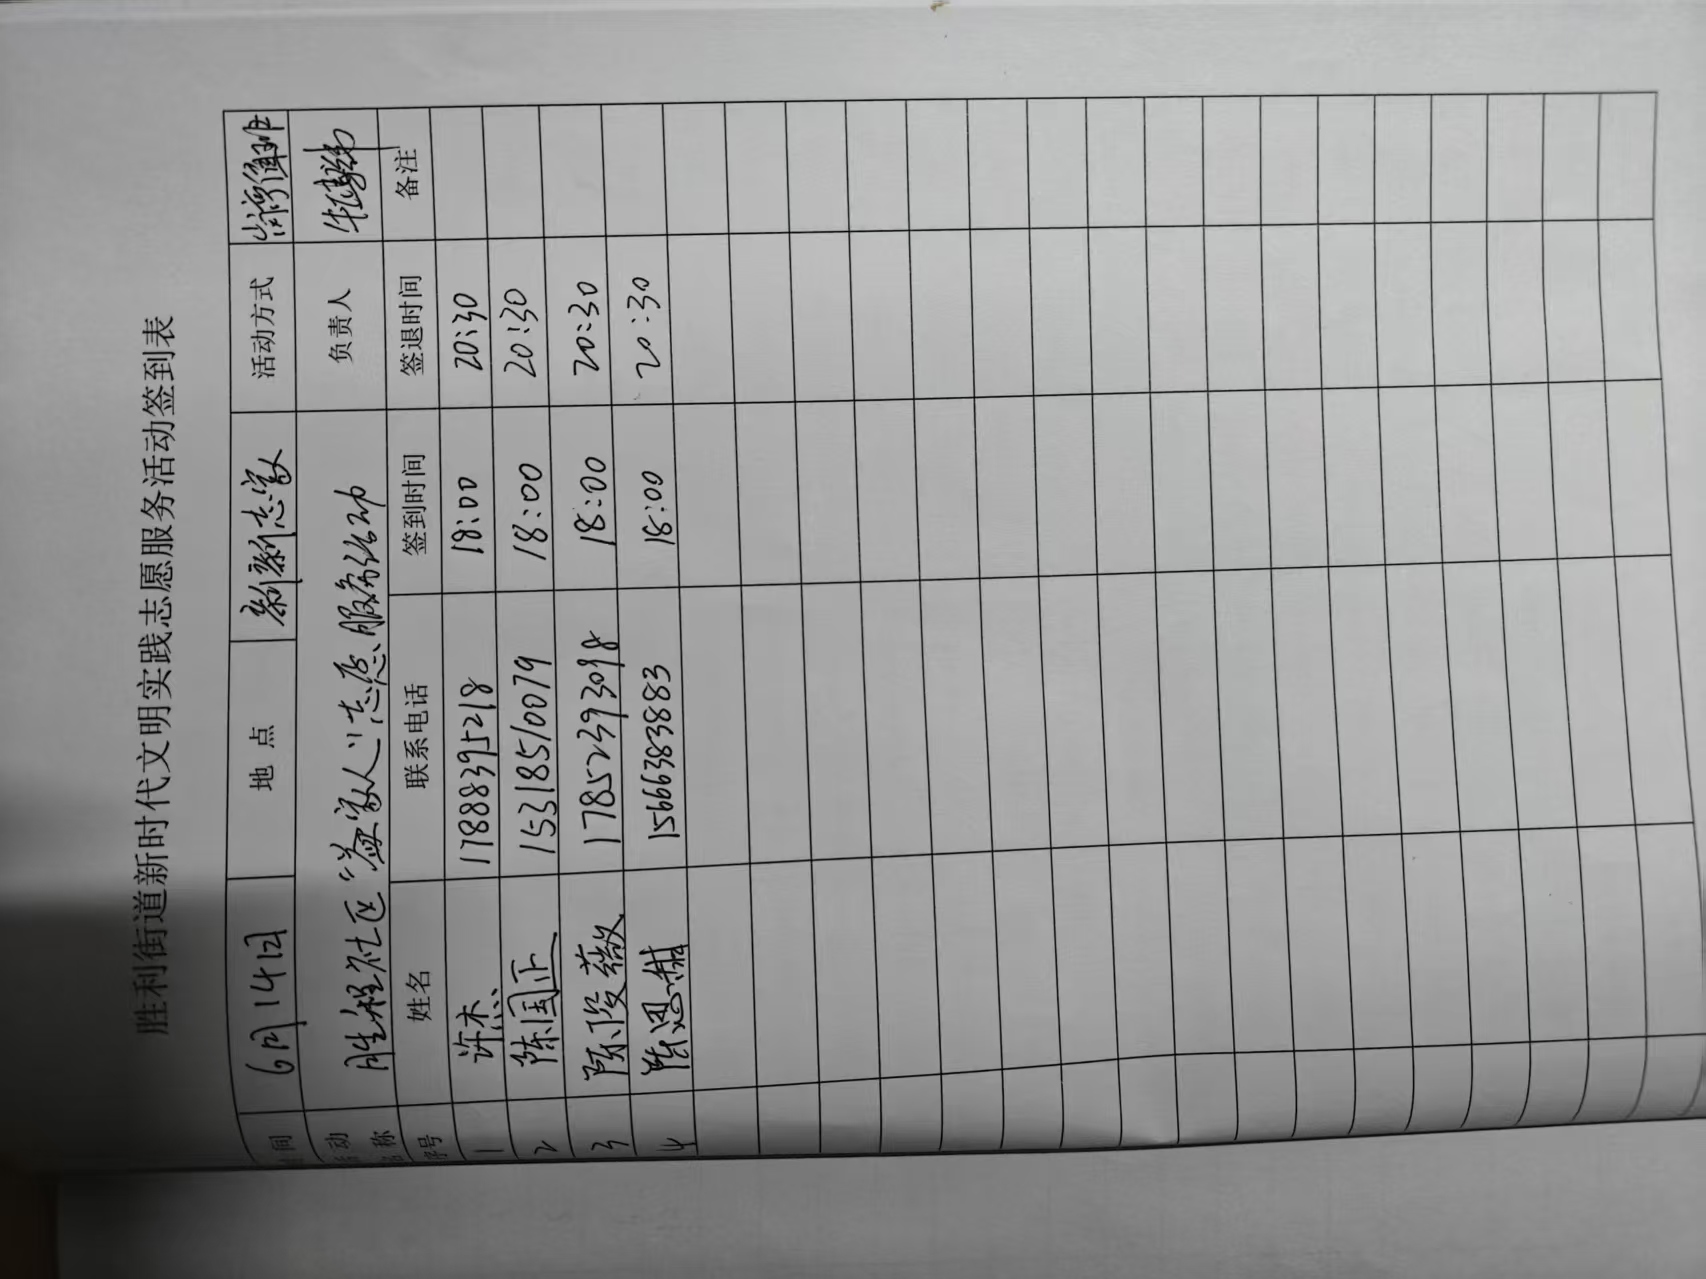 胜利街道新时代文明实践志愿服务活动签到表
间 6月14日 地 点 活动方式
活动名称 胜程社区“益家人”志愿服务活动 负责人
序号 姓名 联系电话 签到时间 签退时间 备注
1 许杰 17888395218 18:00 20:30
2 陈国正 15318510079 18:00 20:30
3 陈俊薇 17852393098 18:00 20:30
4 陈思 15666383883 18:00 20:30